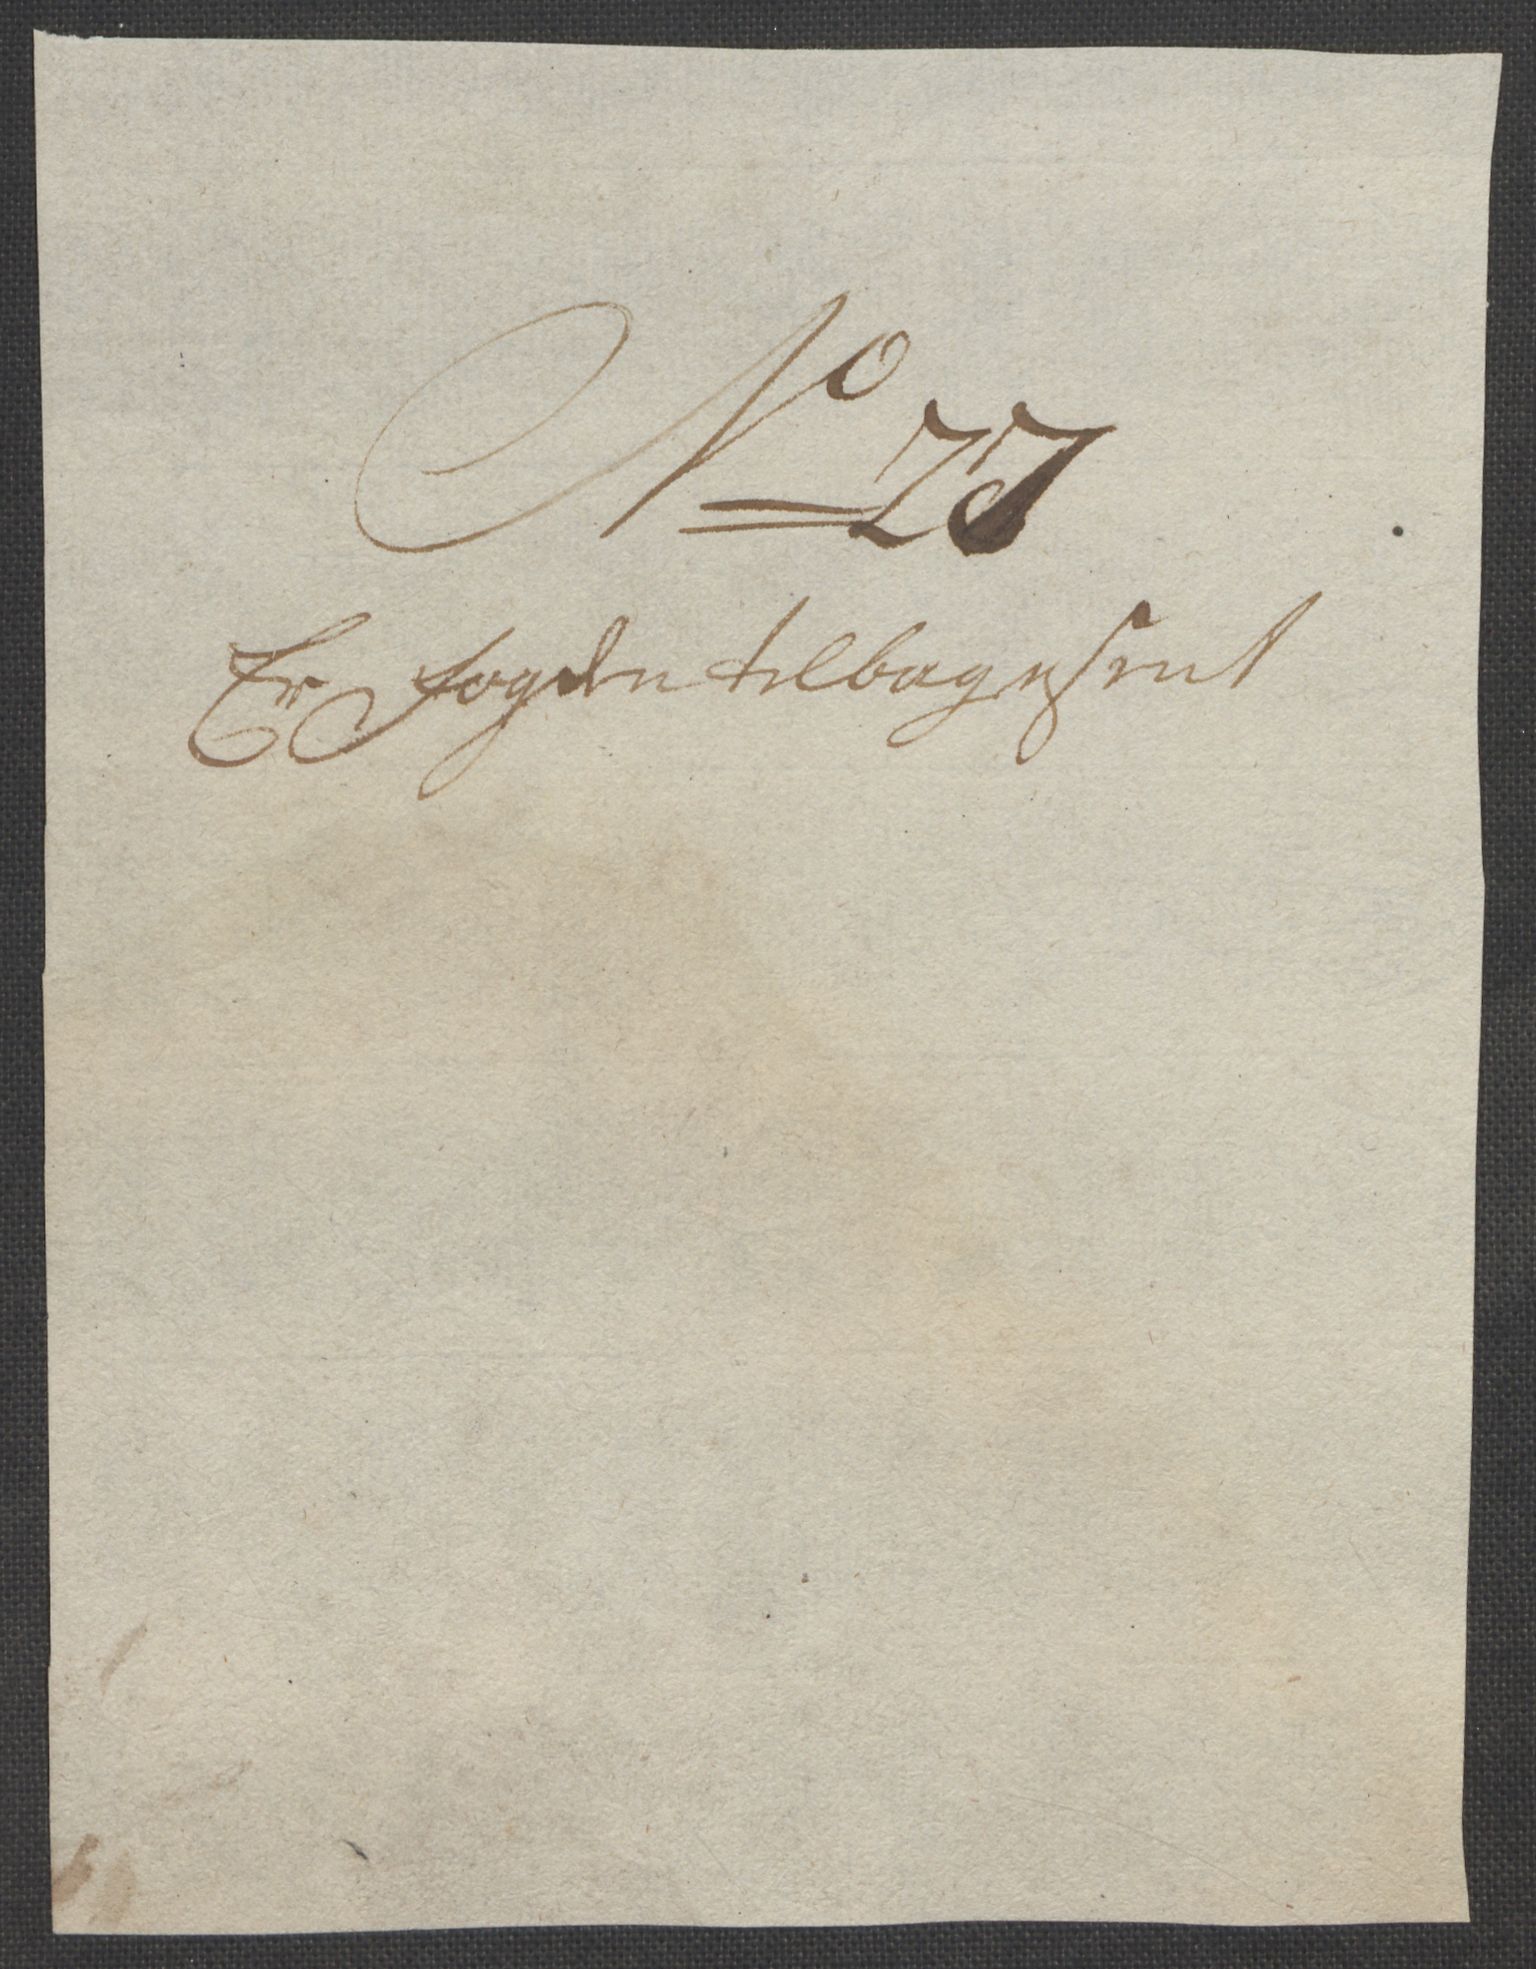 No 27
Er Fogden tilbagesent